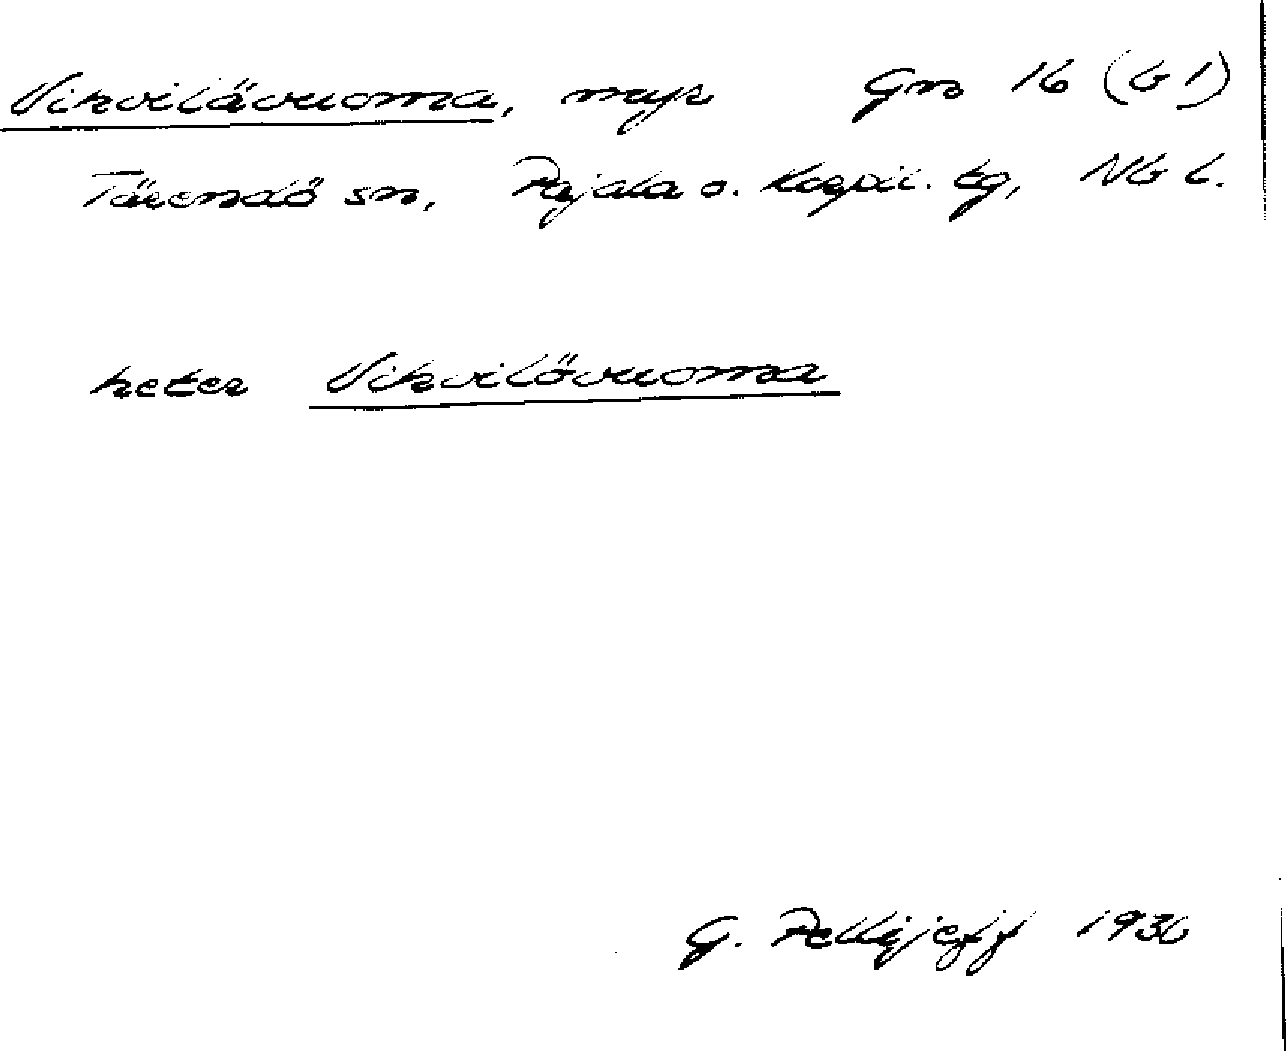 Vihvilävuoma, myr Gm 16 (b 1)
Tärendö sn, Pajala o. Korpil. tg, Nb l.
heter Vihvilövuoma
G. Pellijeff 1936